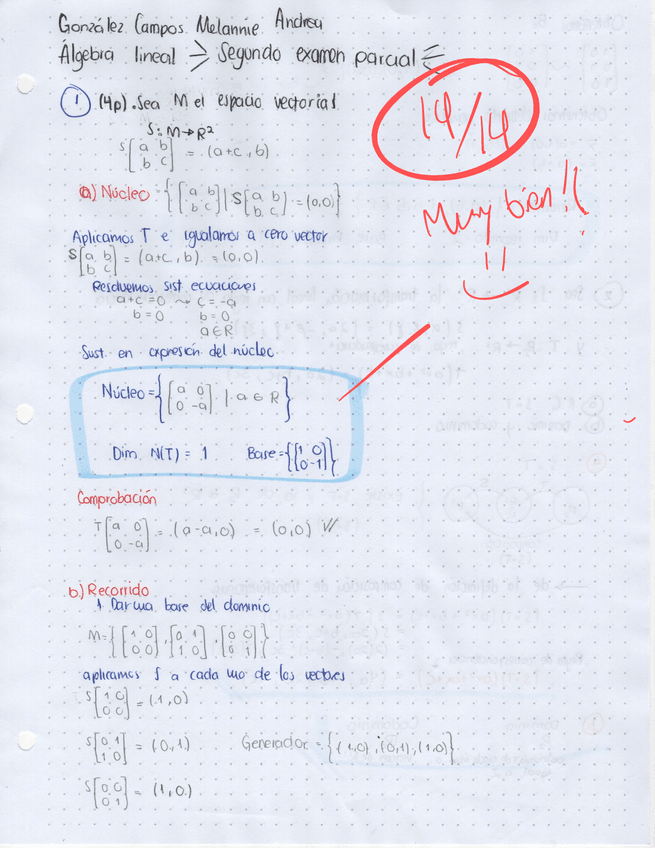 González Campos Melannie Andrea
Álgebra lineal > Segundo examen parcal <
14/14
1 (4p). Sea M el espacio vectorial
S: M → R²
S[a b; b c] = (a+c, b)
Muy bien!!
a) Núcleo = {[a b; b c] | S[a b; b c] = (0,0)}
Aplicamos T e igualamos a cero vector
S[a b; b c] = (a+c, b) = (0,0)
Resolvemos sist ecuaciones
a+c=0 → c=-a
b=0 b=0
a∈R
Sust. en expresión del núcleo
Núcleo = {[a 0; 0 -a] | a ∈ R}
Dim N(T) = 1 Base = {[1 0; 0 -1]}
Comprobación
T[a 0; 0 -a] = (a-a, 0) = (0,0) ✓
b) Recorrido
1. Dar una base del dominio
M = {[1 0; 0 0], [0 1; 1 0], [0 0; 0 1]}
aplicamos S a cada uno de los vectores
S[1 0; 0 0] = (1,0)
S[0 1; 1 0] = (0,1) Generador = {(1,0), (0,1), (1,0)}
S[0 0; 0 1] = (1,0)